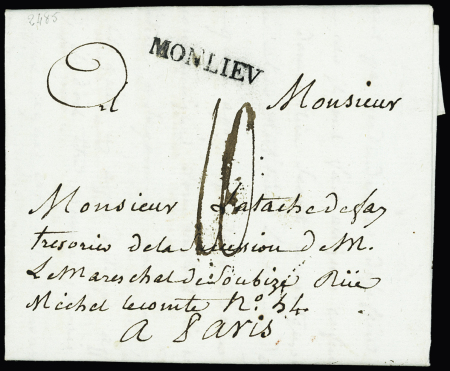 2485
MONLIEV
A Monsieur
10
Monsieur Latache de fay
tresorier de la succession de M.
Le Mareschal de Soubize Rüe
Michel lecomte No. 34.
a Paris